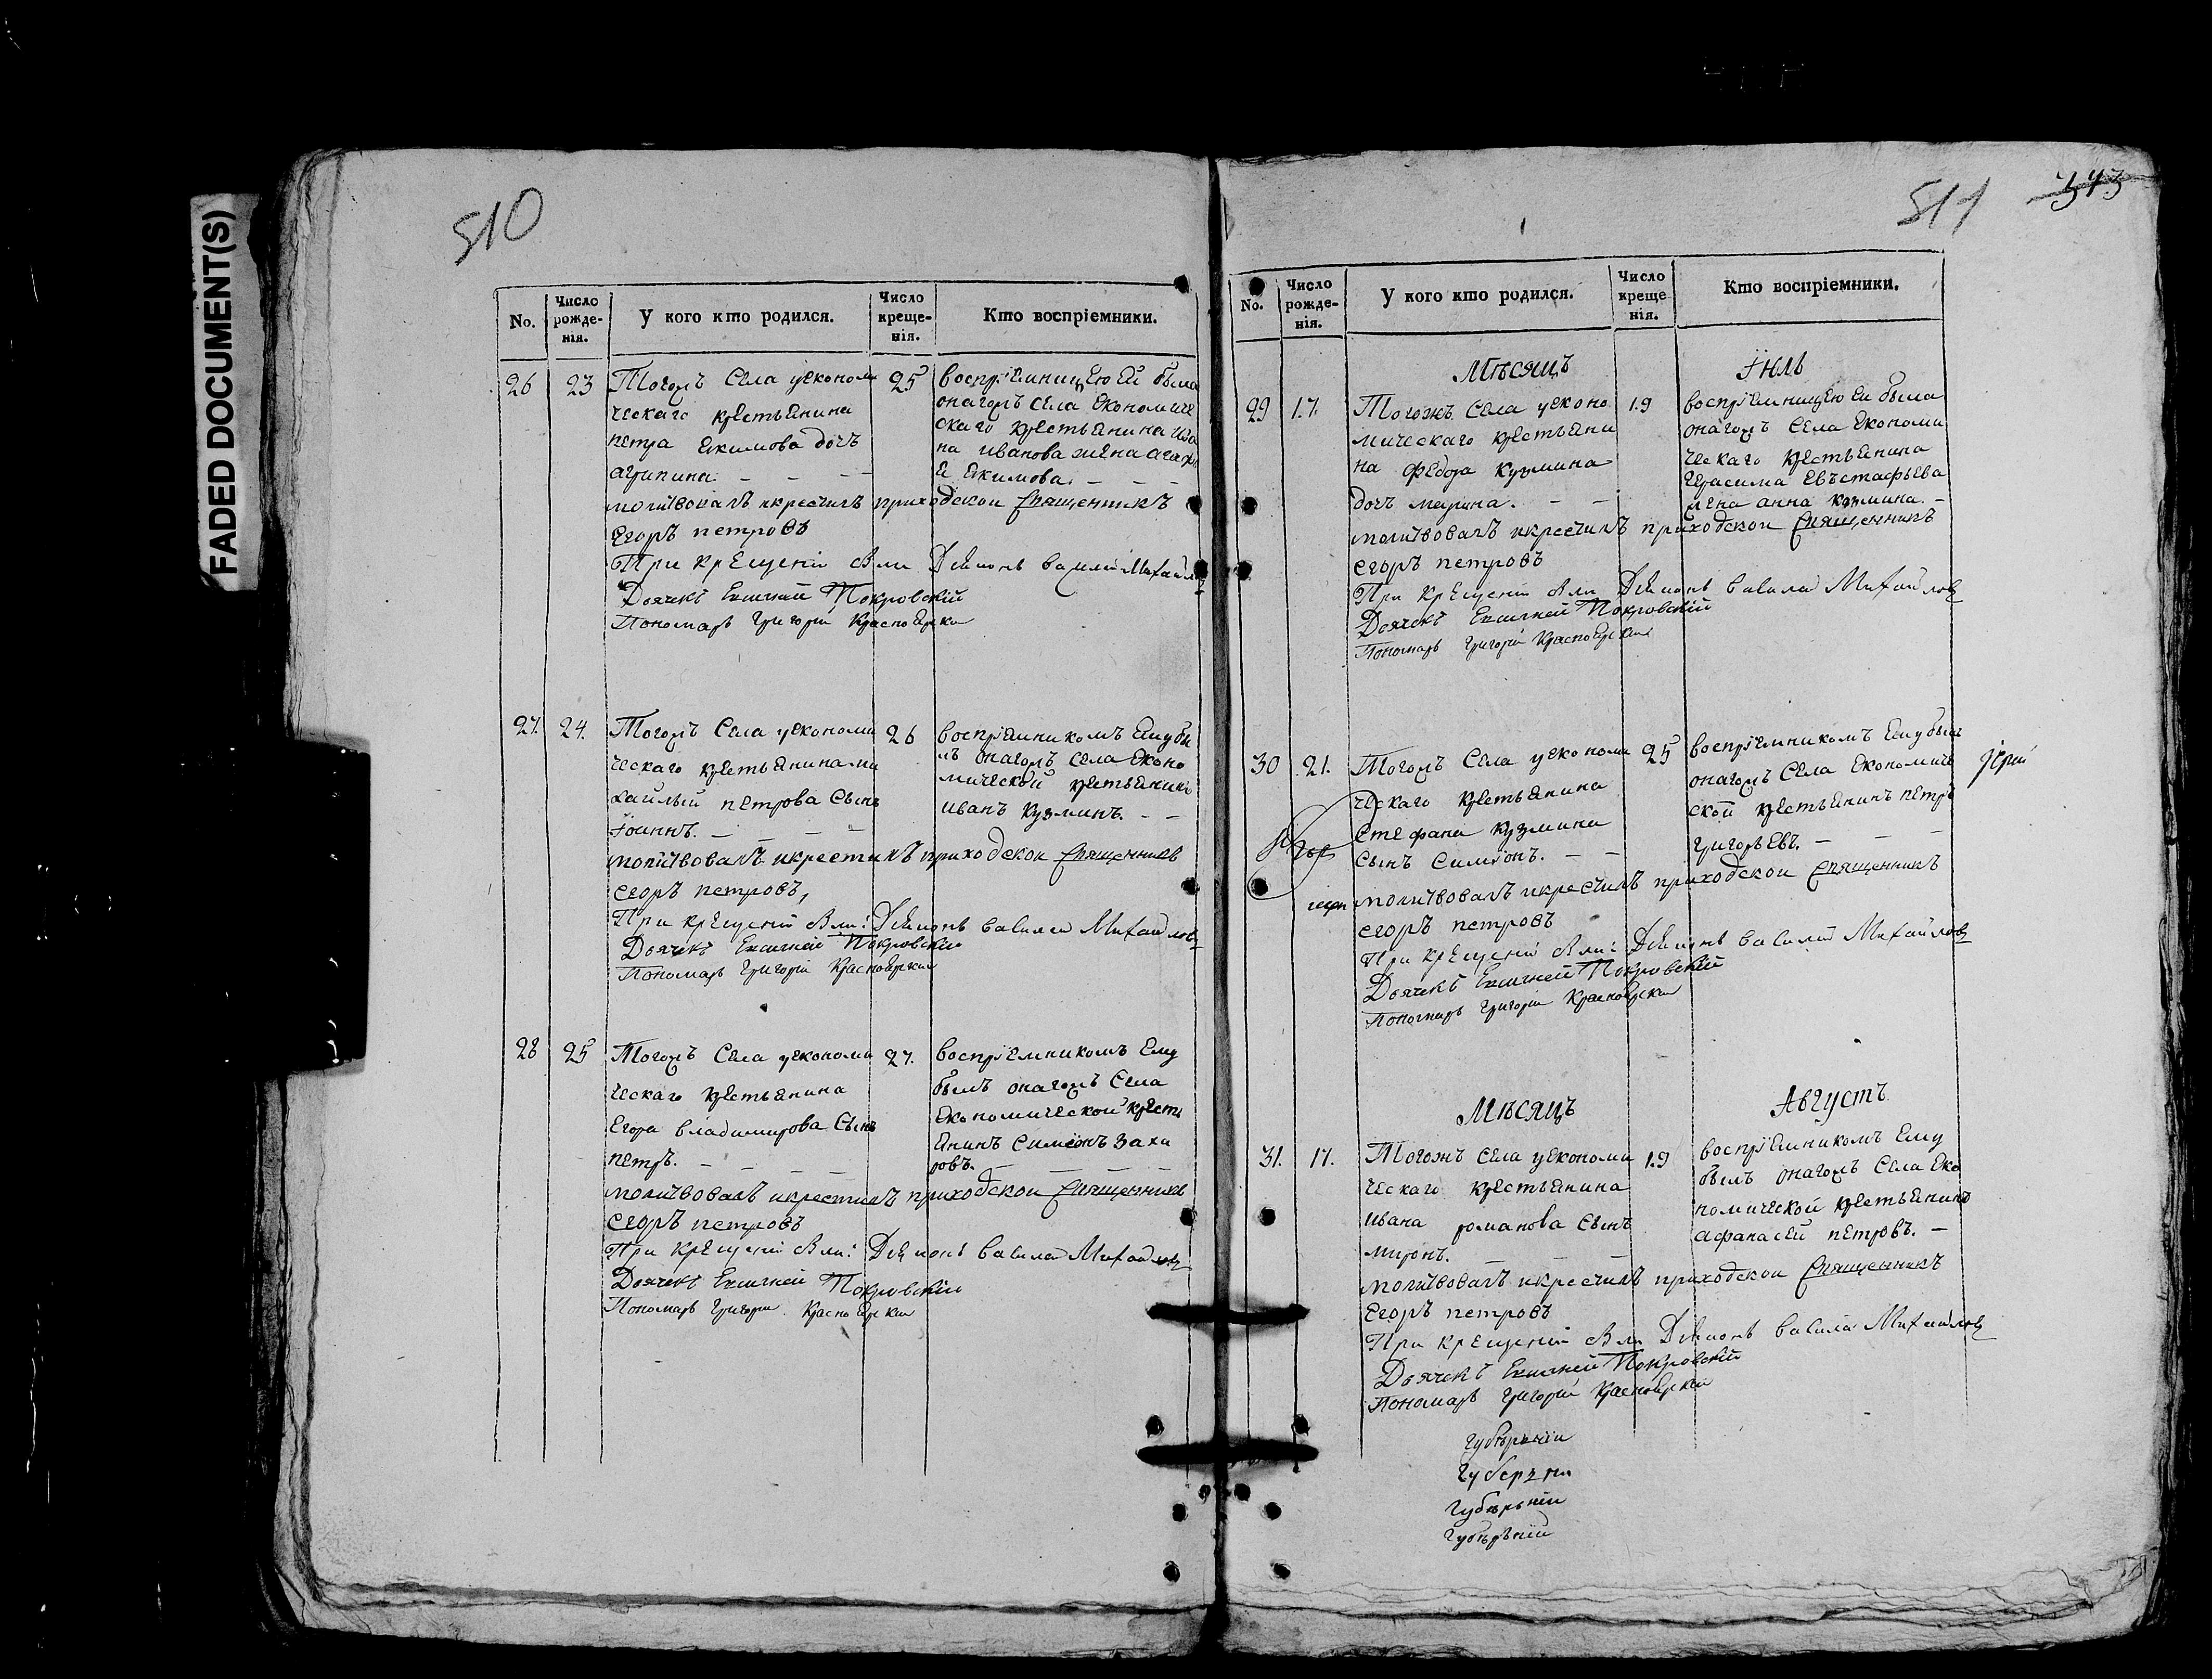 FADED DOCUMENT(S)
510
No.
Число рожде-нія.
У кого кто родился.
Число креще-нія.
Кто воспріемники.
26
23
Тогожъ села уекономи
ческаго крестьянина
петра екимова дочь
агрипина. – – –
25
воспріемницею ей была
онагожъ села економиче
скаго крестьянина ива
на иванова жена агафи
я екимова. – – –
молитвовалъ икрестилъ приходскои священникъ
егоръ петровъ
При крещеніи были Діяконъ василей Михайловъ
Дьячекъ Покровскій
Пономарь григорій Красноярски
27.
24.
Тогожъ села уекономи
ческаго крестьянина ми
хайлы петрова сынъ
іоаннъ. – – –
26
воспріемникомъ ему бы
лъ онагожъ села еконо
мической крестьянинъ
иванъ кузминъ. – –
молитвовалъ икрестилъ приходскои священникъ
егоръ петровъ,
При крещеніи были: Діяконъ василей Михайловъ
Дьячекъ Покровскій
Пономарь григорій Красноярски
28
25
Тогожъ села уекономи
ческаго крестьянина
егора владимирова сынъ
петръ. – – – –
27.
воспріемникомъ ему
былъ онагожъ села
економической кресть
янинъ симеонъ заха
ровъ. – – –
молитвовалъ икрестилъ приходскои священникъ
егоръ петровъ
При крещеніи были: Діяконъ василей Михайловъ
Дьячекъ Покровскій
Пономарь григорій Красноярски
511
343
No.
Число рожде-нія.
У кого кто родился.
Число креще нія.
Кто воспріемники.
Мѣсяцъ
Іюль
29
17.
Тогожъ села уеконо
мическаго крестьяни
на федора кузмина
дочь марина. – –
19
воспріемницею ей была
онагожъ села економи
ческаго крестьянина
герасима евъстафьева
жена анна козмина. –
молитвовалъ икрестилъ приходскои священникъ
егоръ петровъ
При крещеніи были Діяконъ василей Михайловъ
Дьячекъ Покровскій
Пономарь григорій Красноярски
30
21.
Тогожъ села уекономи
ческаго крестьянина
стефана кузмина
сынъ симіонъ. – –
25
воспріемникомъ ему былъ
онагожъ села економиче
ской крестьянинъ петръ
григорьевъ. – – –
іерей
молитвовалъ икрестилъ приходскои священникъ
егоръ петровъ
При крещеніи были: Діяконъ василей Михайловъ
Дьячекъ Покровскій
Пономарь григорій Красноярски
Мѣсяцъ
Августъ
31.
17.
Тогожъ села уекономи
ческаго крестьянина
ивана романова сынъ
миронъ. – – –
19
воспріемникомъ ему
былъ онагожъ села еко
номической крестьянинъ
афанасей петровъ. –
молитвовалъ икрестилъ приходскои священникъ
егоръ петровъ
При крещеніи были Діяконъ василей Михайловъ
Дьячекъ Покровскій
Пономарь григорій Красноярски
губѣрьніи
губерни
губѣрьніи
губѣрѣніи